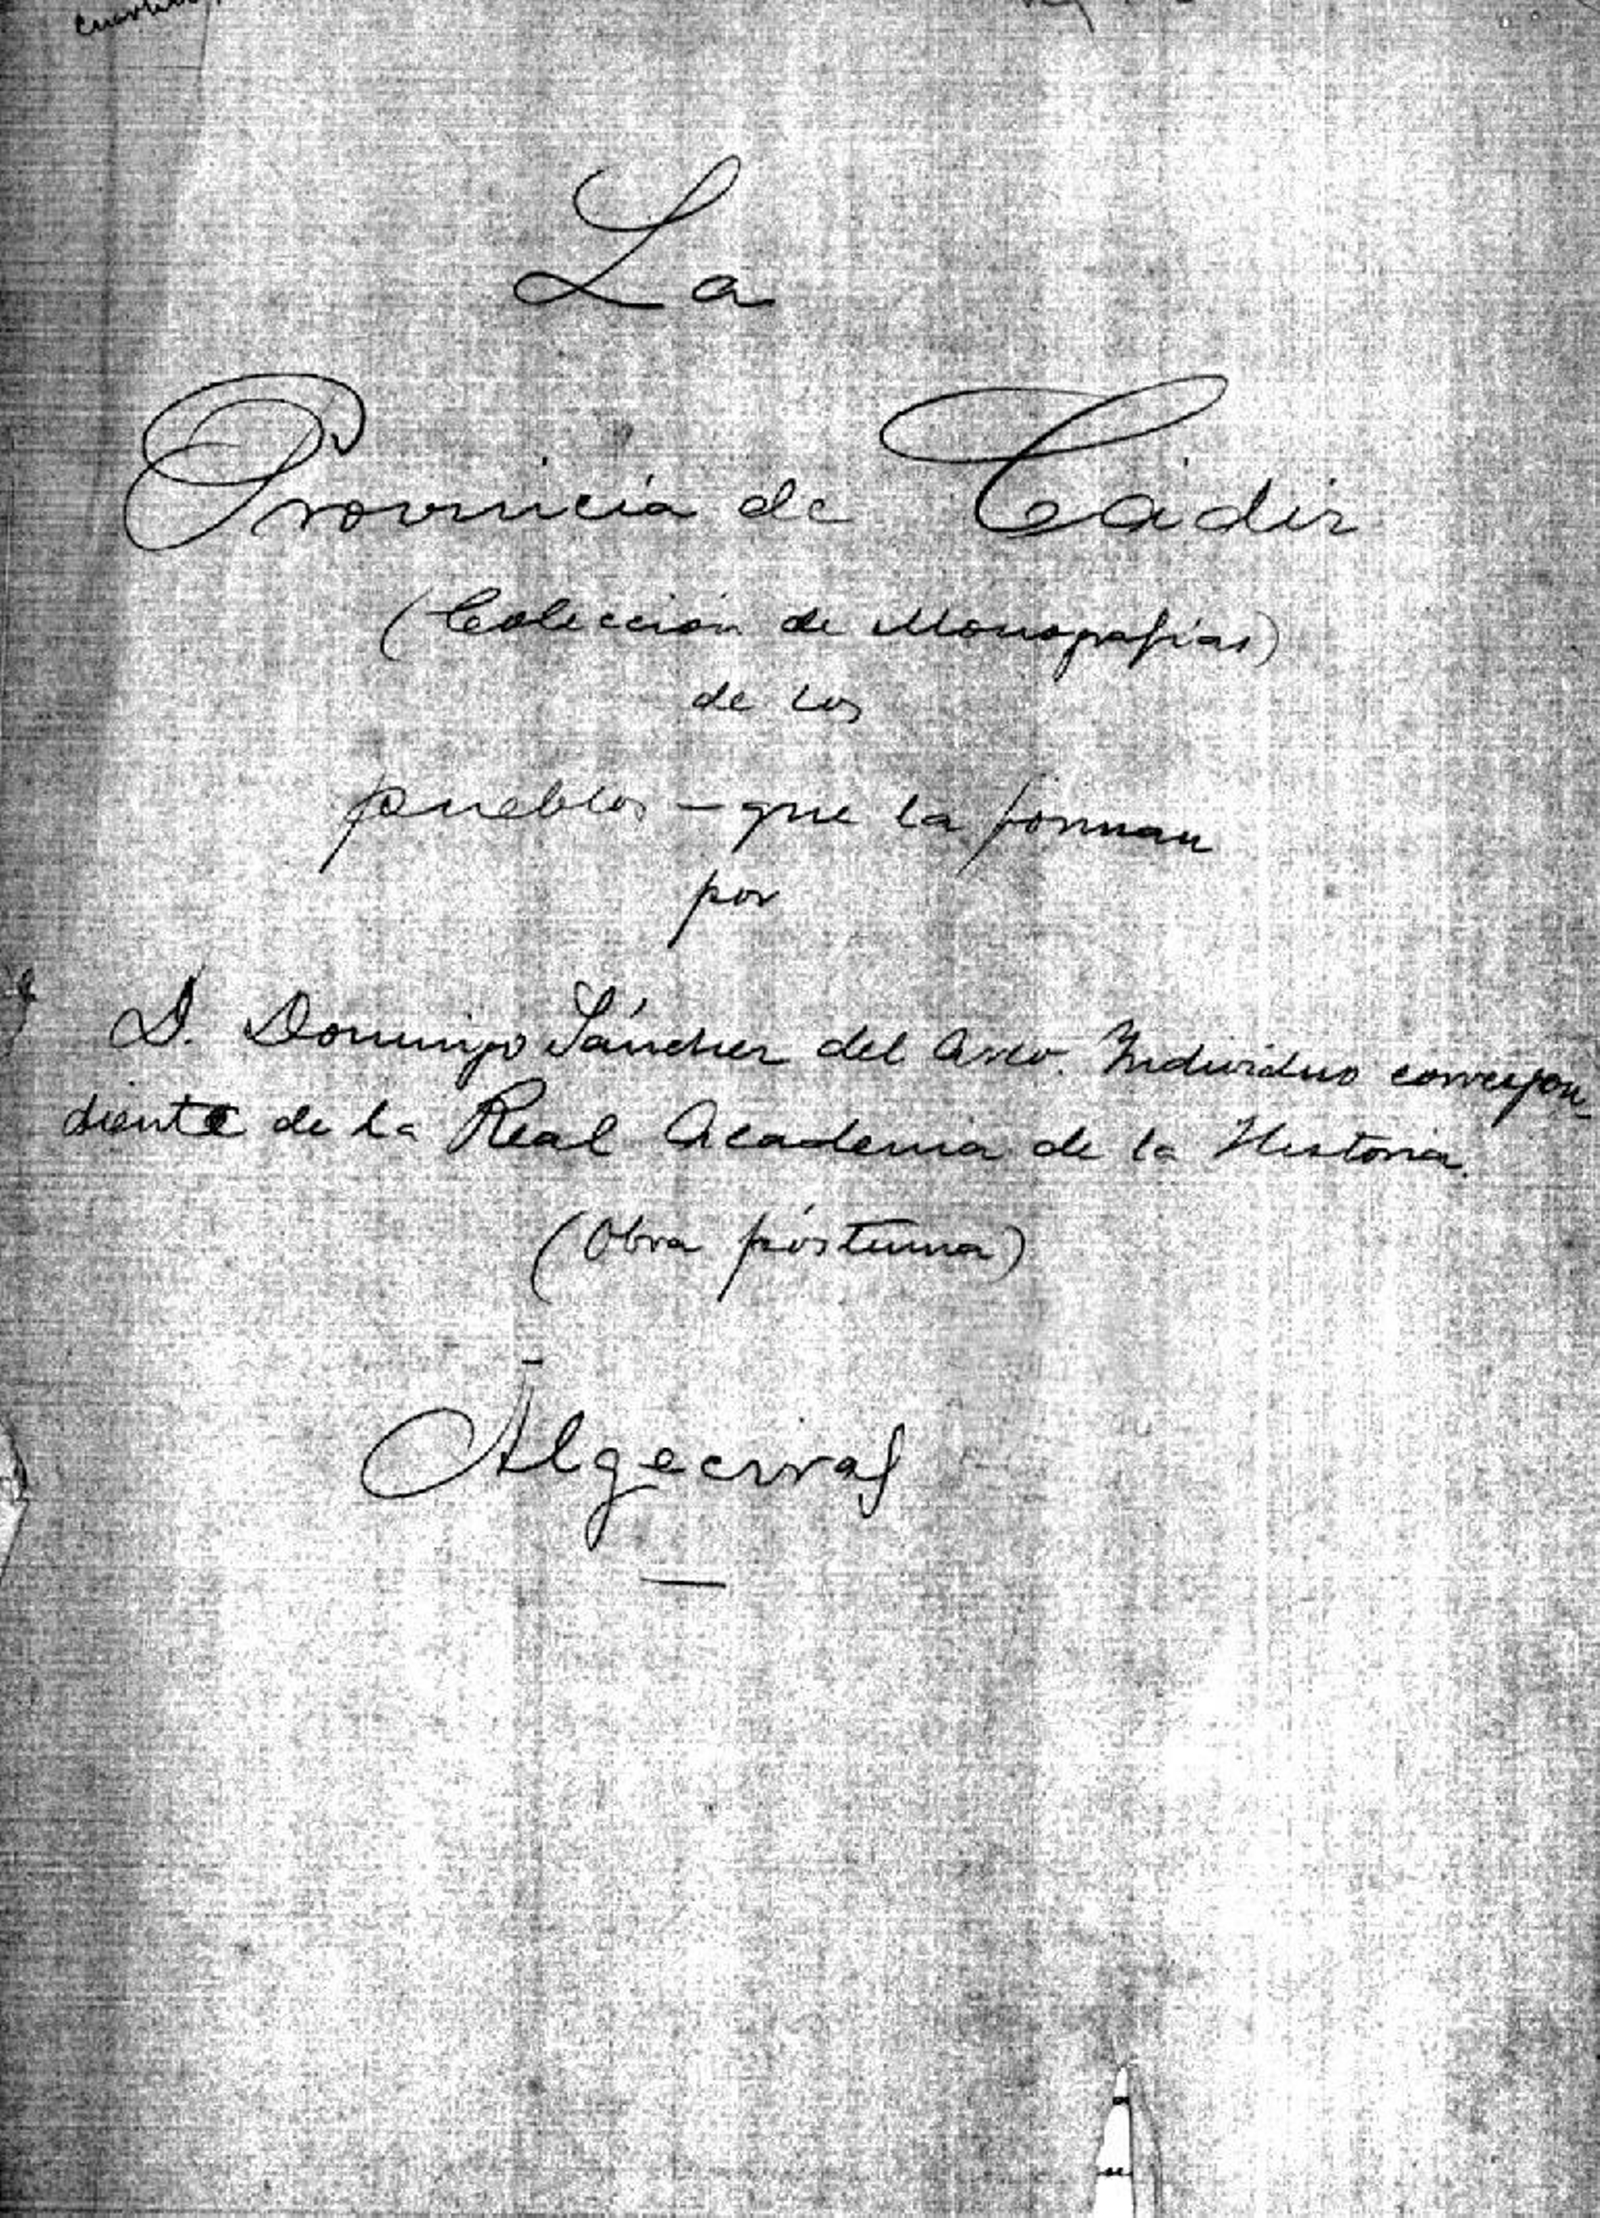 La
Provincia de Cádiz
(Colección de Monografías)
de los
pueblos – que la forman
por
D. Domingo Sánchez del Arco. Individuo correspon-
diente de la Real Academia de la Historia.
(Obra póstuma)
Algeciras